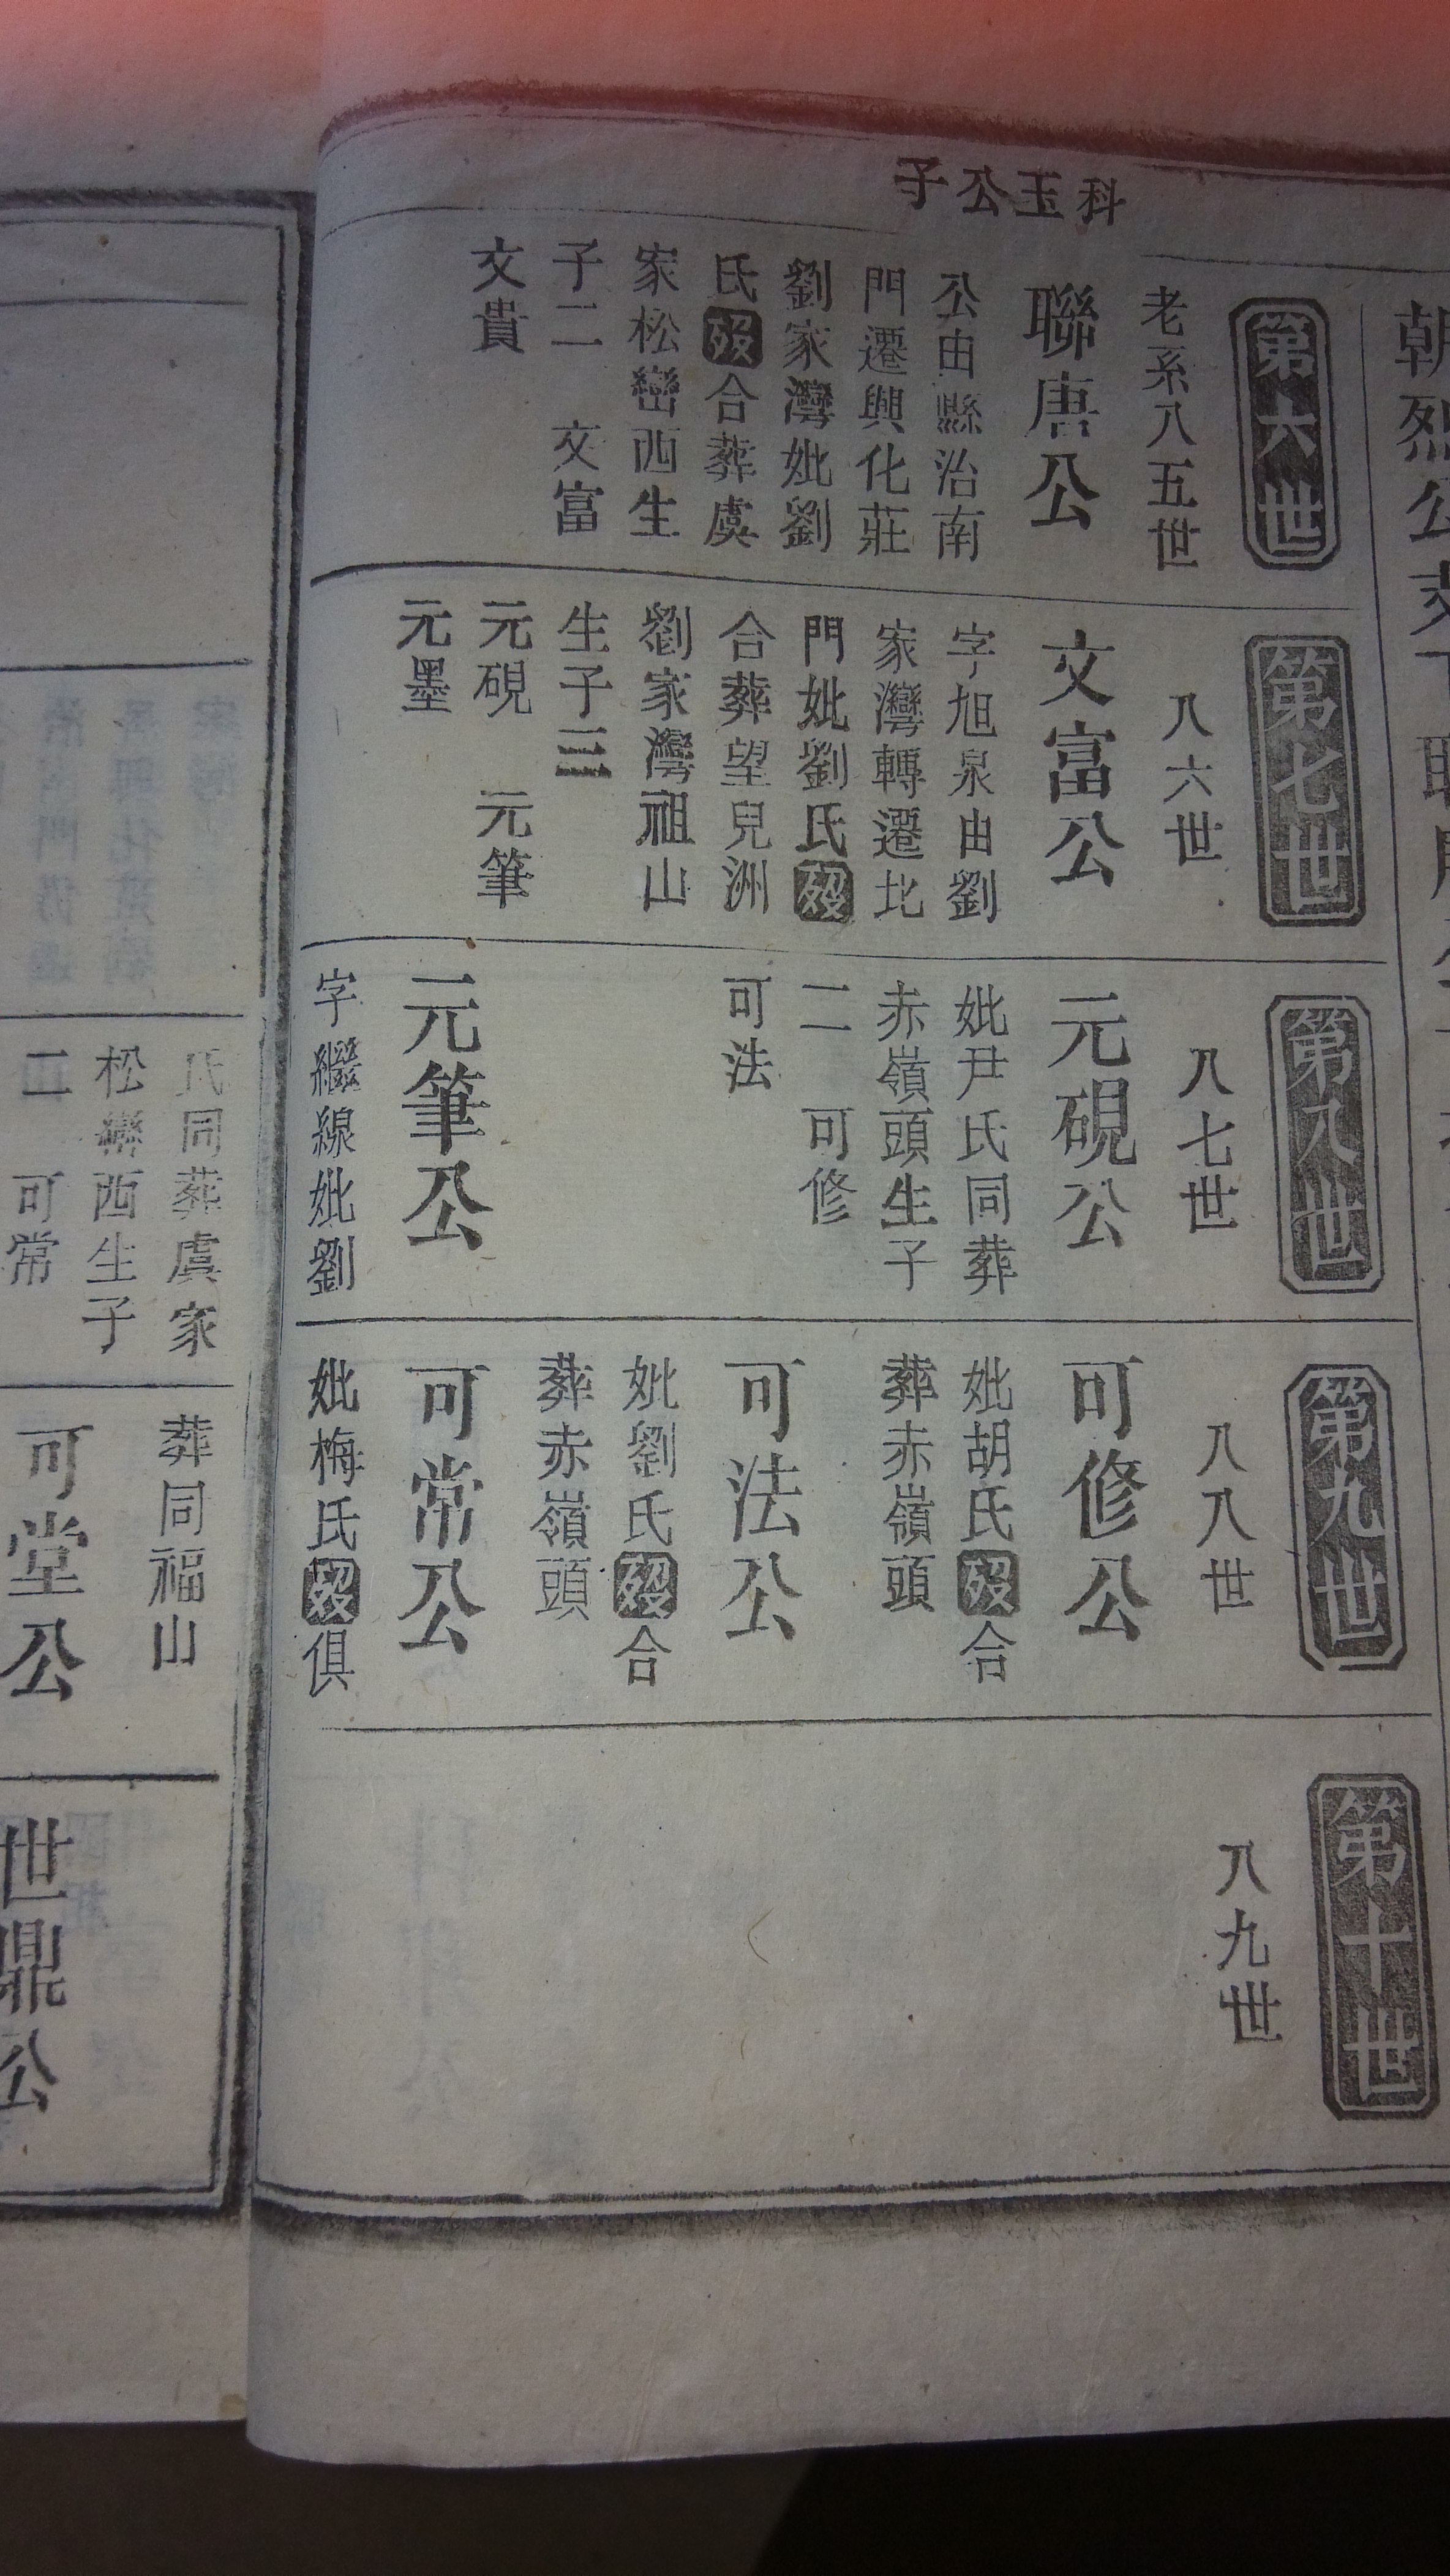 科玉公子
第六世
老系八五世
聯唐公
公由縣治南
門遷興化莊
劉家灣妣劉
氏歿合葬虞
家松巒西生
子二 文富
文貴
第七世
八六世
文富公
字旭泉由劉
家灣轉遷北
門妣劉氏歿
合葬望兒洲
劉家灣祖山
生子三
元硯 元筆
元墨
第八世
八七世
元硯公
妣尹氏同葬
赤嶺頭生子
二 可修
可法
元筆公
字繼線妣劉
第九世
八八世
可修公
妣胡氏歿合
葬赤嶺頭
可法公
妣劉氏歿合
葬赤嶺頭
可常公
妣梅氏歿俱
第十世
八九世
氏同葬虞家
松巒西生子
二 可常
葬同福山
可堂公
世鼎公